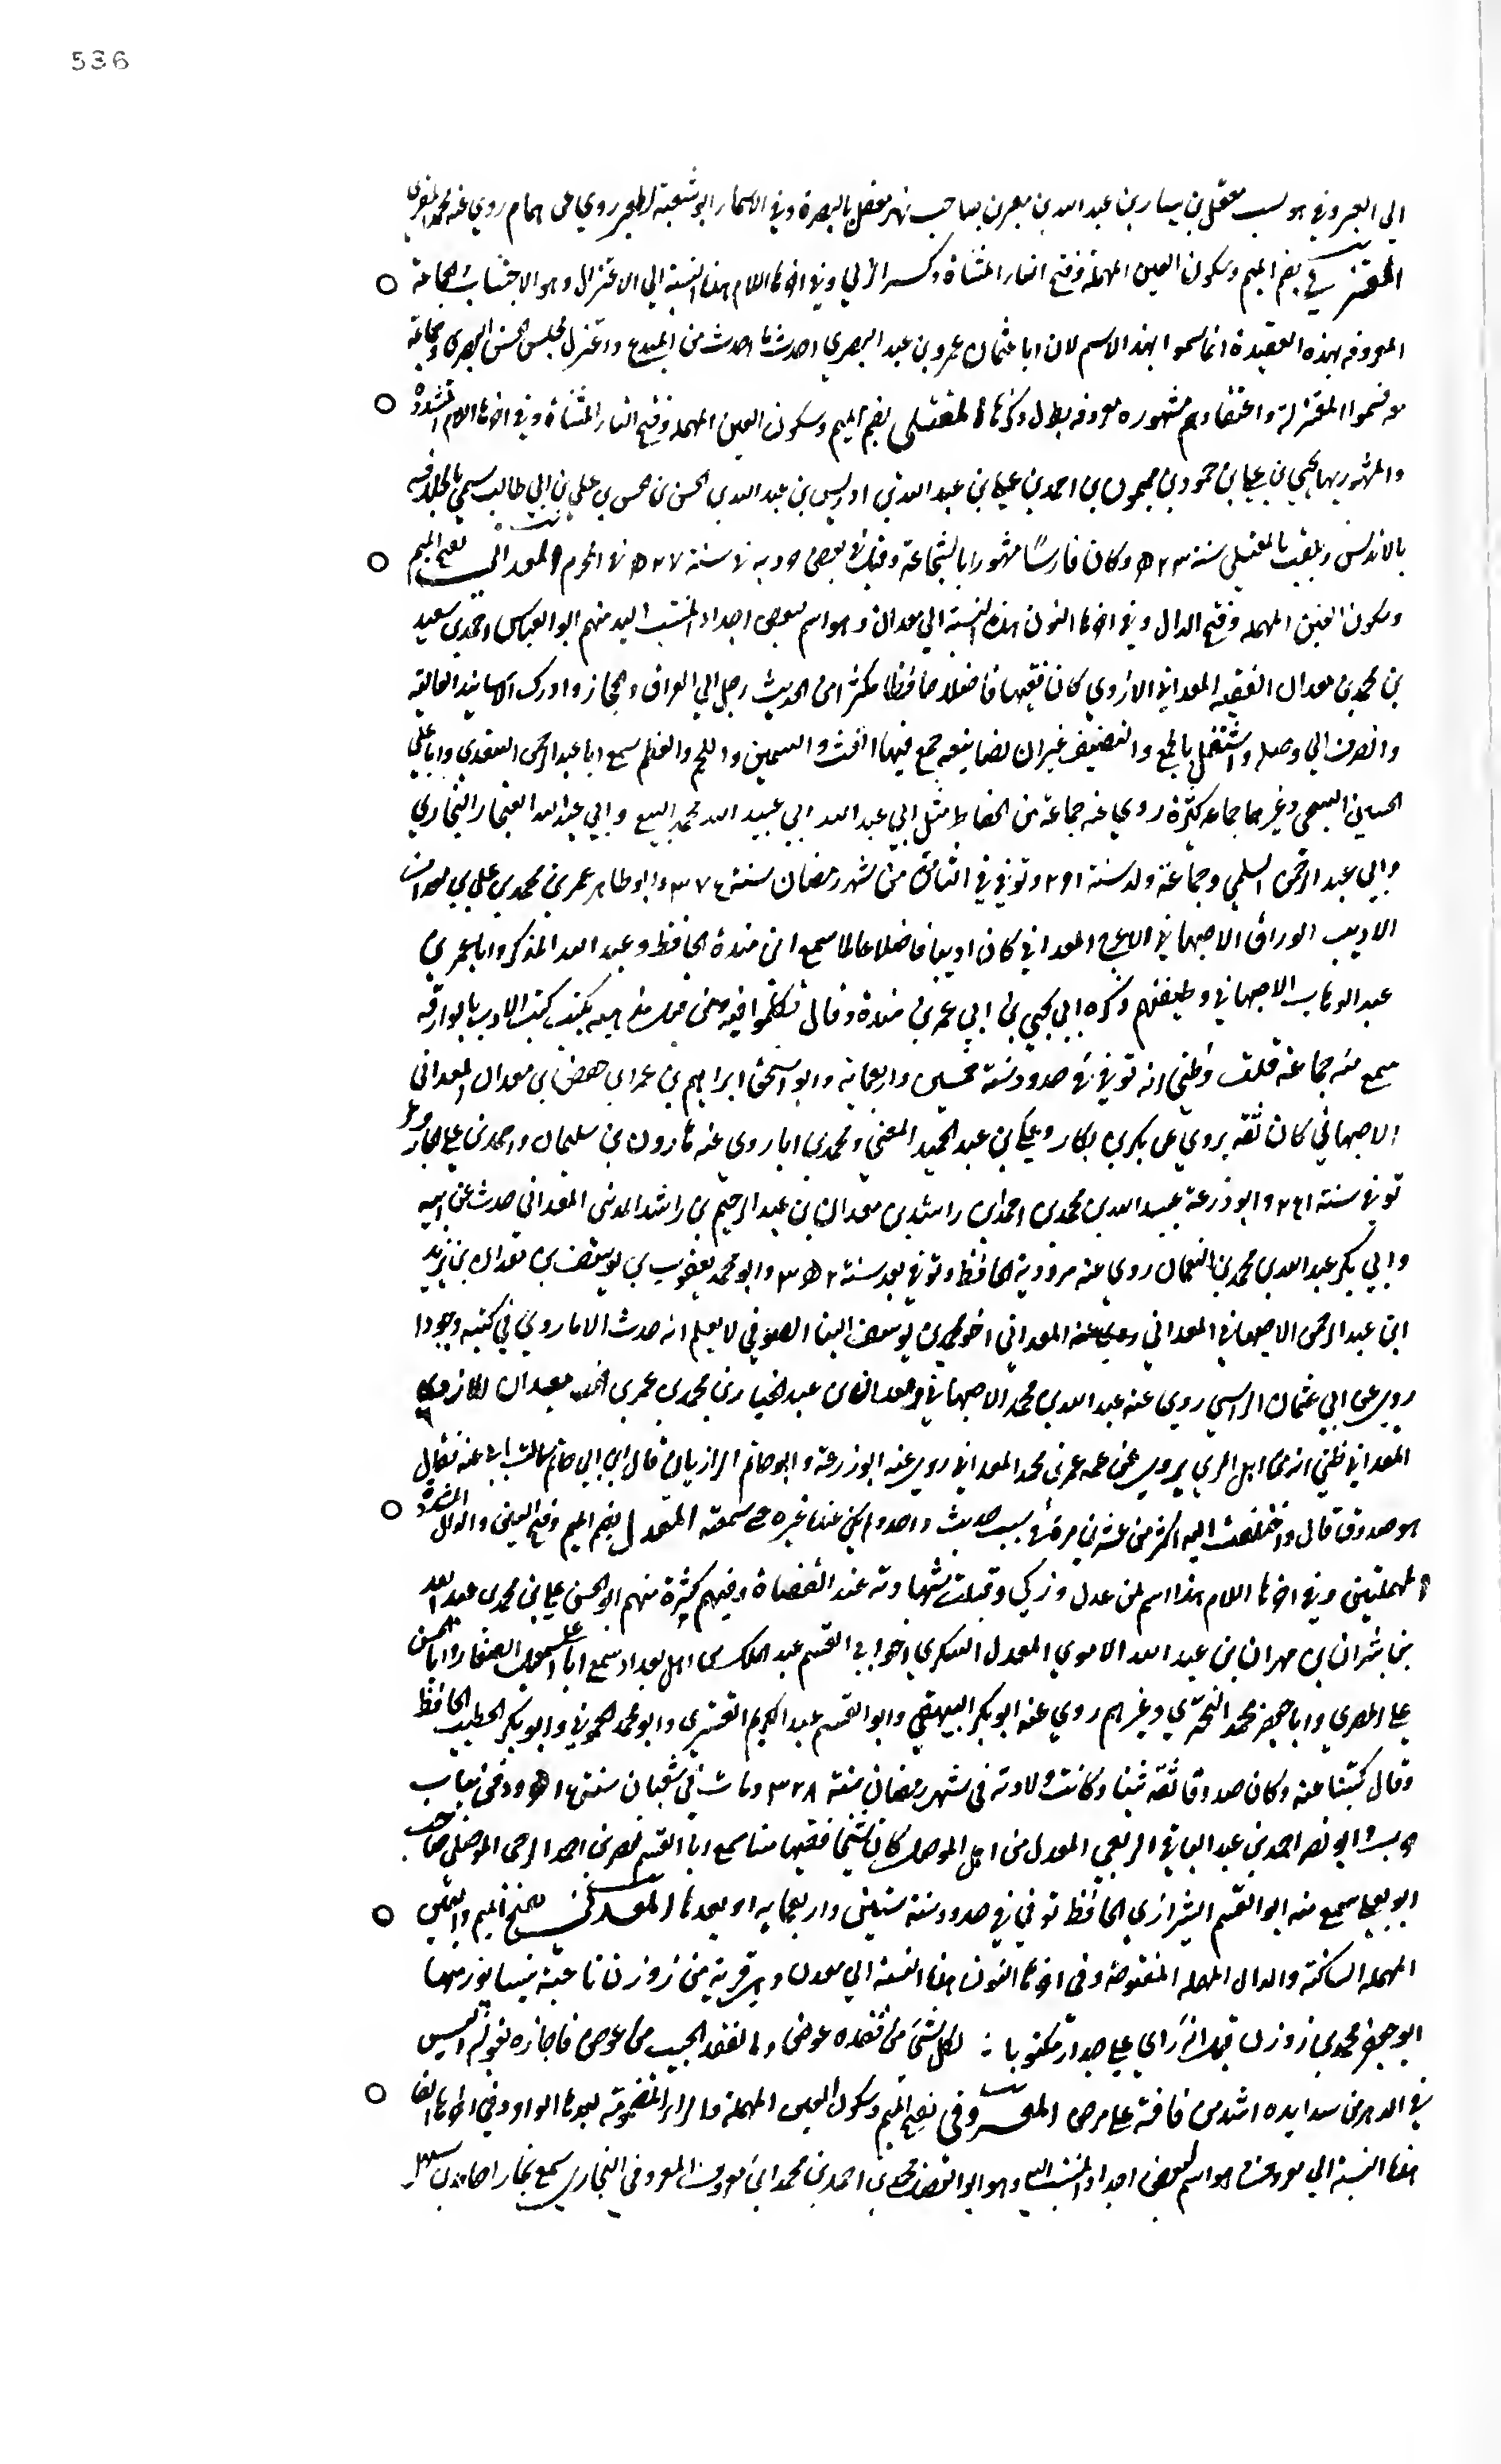 536
الي العمروني هو نسب معقل بن يسار بن عبد الله بن معبر بن صاحب نهر معقل بالبصرة وفي الاسماء ابو شعبة روي عن همام روي عنه محمد
المعتزلي بضم الميم وسكون العين المهملة وفتح التاء المثناة وكسر الزاي وفي اخرها اللام هذه النسبة الي الاعتزال وهو الاجتناب
المعروفه بهذه العقيدة انما سموا بهذا الاسم لان ابا عثمان عمرو بن عبيد البصري احدث ما احدث من البدع واعتزل مجلس الحسن البصري وجماعة
معه فسموا المعتزلة واعتقادهم مشهوره معروفه يطول ذكرها المعتلي بضم الميم وسكون العين المهمله وفتح التاء المثناة وفي اخرها اللام المشددة
والمشهور بها يحيي بن علي بن حمود بن ميمون بن احمد بن علي بن عبد الله بن ادريس بن عبد الله بن الحسن بن حسن بن علي بن ابي طالب سمي بالخلافه
بالاندلس وتلقب بالمعتلي سنة وكان فارسًا مشهورا بالشجاعة وقتل في بعض حروبه في سنة في المحرم المعداني بفتح الميم
وسكون العين المهمله وفتح الدال وفي اخرها النون هذه النسبة الي معدان وهو اسم لبعض اجداد المنتسب اليه منهم ابو العباس احمد بن سعيد
بن محمد بن معدان الفقيه المعداني الازدي كان فقيها فاضلا حافظا مكثرا من الحديث رحل الي العراق والحجاز وادرك الاسانيد العالية
وانصرف الي وطنه واشتغل بالجمع والتصنيف غير ان تصانيفه جمع فيها الغث والسمين واللحم والعظم سمع ابا عبد الرحمن السعدي وابا علي
الحسين وغيرهما جماعه كثيرة روي عنه جماعة من الحفاظ مثل ابي عبد الله ابي عبيد الله محمد البيع وابي عبد الله الغنجار البخاري
وابي عبد الرحمن السلمي وجماعة ولد سنة ٢٩١ وتوفي في الثامن من شهر رمضان سنة ٣٧٤ وابو طاهر عمر بن محمد بن علي بن معدان
الاديب الوراق الاصبهاني الاعرج المعداني كان اديبا فاضلا عالما سمع ابن مندة الحافظ وعبد الله المذكر وابا عمر بن
عبد الوهاب الاصبهاني وطبقتهم ذكره ابي يحيي بن ابي عمر بن مندة وقال تكلموا فيه كتب الادب بالوراقه
سمع منه جماعة قلت وظني انه توفي في حدود سنة خمسين واربعمايه وابو اسحق ابراهيم بن عمر بن حفص بن معدان المعداني
الاصبهاني كان ثقه يروي عن بكر بن بكار وعلي بن عبد الحميد المعني ومحمد بن ابان روي عنه هارون بن سليمان واحمد بن علي الجارود
توفي سنة ٢٤١ وابو ذرعة عبيد الله بن محمد بن احمد بن راشد بن معدان بن عبد الرحيم بن راشد المدني المعداني حدث عن ابيه
وابي بكر عبد الله بن محمد بن النعمان روي عنه مردويه الحافظ وتوفي بعد سنة وابو محمد يعقوب بن يوسف بن معدان بن يزيد
ابن عبد الرحمن الاصبهاني المعداني اخو محمد بن يوسف البنا الصوفي لا يعلم انه حدث الا ما روي في كتبه وجودا
روي عن ابي عثمان روي عنه عبد الله بن محمد الاصبهاني والمعداني عبد الجبار بن محمد بن عمر بن معدان
المعداني ظني انه من اهل الري يروي عن عمه عمر بن محمد المعداني روي عنه ابوزرعة وابو حاتم الرازيان قال ابن ابي حاتم سالت ابي عنه فقال
هو صدوق قال واختلفت اليه اكثر من عشرين مرة في سبب حديث واحد ولم يكن عنده غيره حتي سمعته المعدل بضم الميم وفتح العين والدال المشددة
المهملتين وفي اخرها اللام هذا اسم لمن عدل وزكي وقبلت شهادته عند القضاة وفيهم كثرة منهم ابو الحسن علي بن محمد بن عبد الله
بن بشران بن مهران بن عبد الله الاموي المعدل السكري اخو ابي القسم عبد الملك من اهل بغداد سمع ابا علي اسمعيل الصفار وابا الحسن
علي المصري وابا جعفر محمد البختري وغيرهم روي عنه ابو بكر البيهقي وابو القسم عبد الكريم القشيري وابو محمد الجويني وابو بكر الخطيب الحافظ
وقال كتبنا عنه وكان صدوقا ثقة ثبتا وكانت ولادته في شهر رمضان سنة ٣٢٨ ومات في شعبان سنة ودفن بباب
حرب وابو نصر احمد بن عبد الباقي الربعي المعدل من اهل الموصل كان شيخا فقيها سمع ابا القسم نصر بن احمد المرجي الموصلي صاحب
ابو يعلي سمع منه ابو القسم الشيرازي الحافظ توفي في حدود سنة ستين واربعمايه او بعدها المعدني بفتح الميم والعين
المهمله الساكنه والدال المهمله المفتوحة وفي اخرها النون هذه النسبة الي معدن وهي قرية من زوزن ناحية نيسابور منها
ابو جعفر محمد بن زوزن قيل انه راي علي جدار مكتوبا : لكل شيء من فقده عوض وما لفقد الحبيب من عوض فاجازه بقوله وليس
في الدهر من سدايده اشد من فاقة علي مرض المعروفي بفتح الميم وسكون العين المهملة والراء المضمومة بعدها الواو وفي اخرها الفا
هذه النسبة الي معروف وهو اسم لبعض اجداد المنتسب اليه وهو ابو محمد بن احمد بن محمد ابن معروف المعروفي البخاري سمع بخارا حامد بن سهل